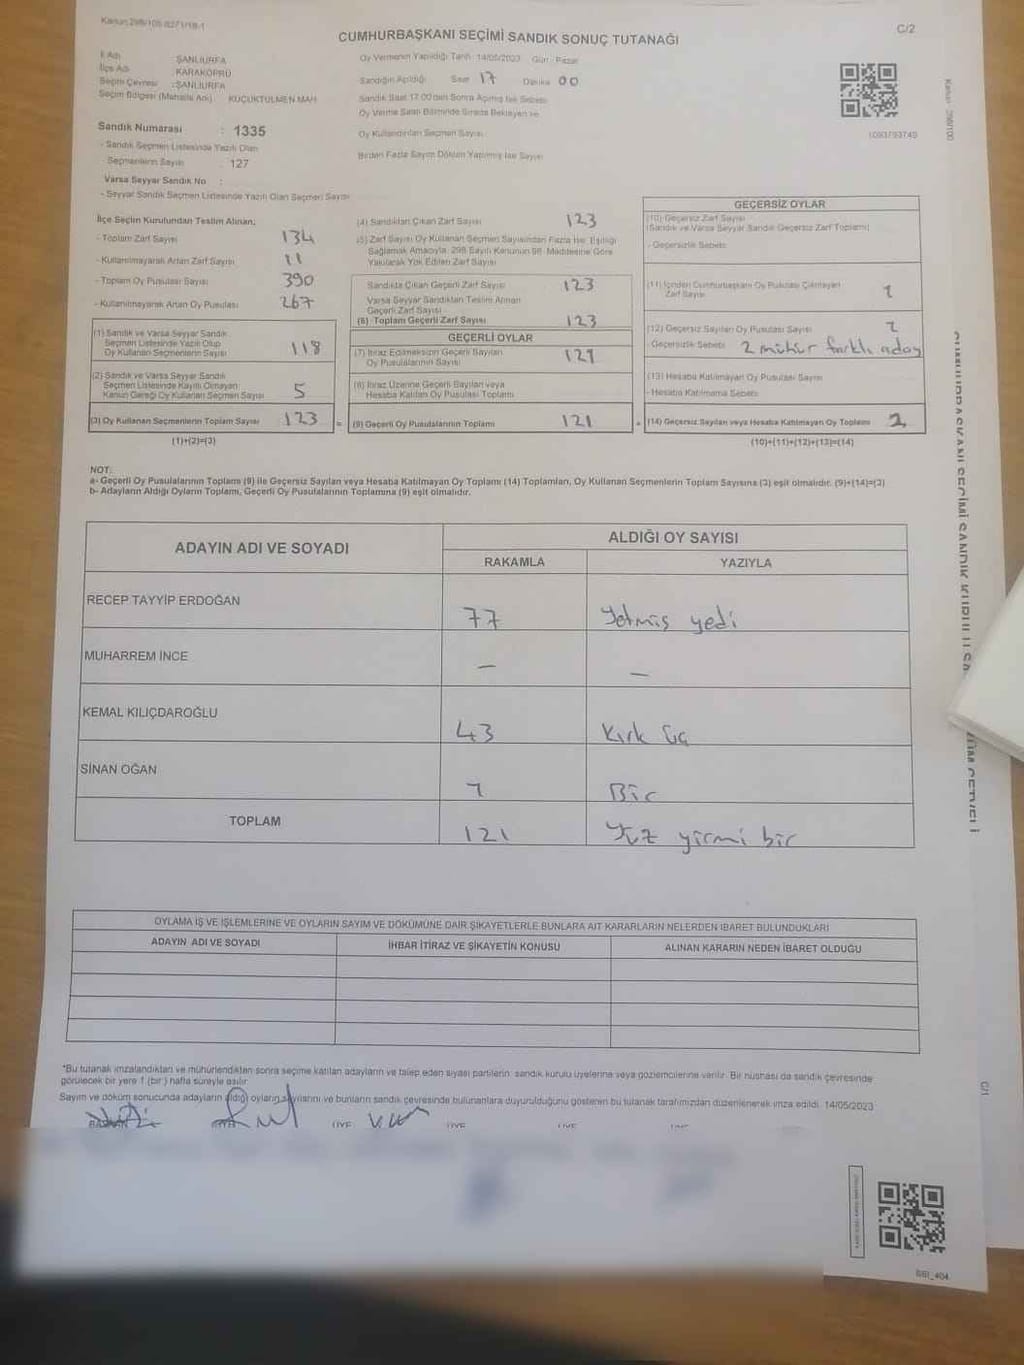 CUMHURBAŞKANI SEÇİMİ SANDIK SONUÇ TUTANAĞI
C/2
İl Adı : ŞANLIURFA
İlçe Adı : KARAKÖPRÜ
Seçim Çevresi : ŞANLIURFA
Seçim Bölgesi (Mahalle Adı) : KÜÇÜKTÜLMEN MAH
Sandık Numarası : 1335
- Sandık Seçmen Listesinde Yazılı Olan
Seçmenlerin Sayısı : 127
Varsa Seyyar Sandık No :
- Seyyar Sandık Seçmen Listesinde Yazılı Olan Seçmen Sayısı
Oy Vermenin Yapıldığı Tarih : 14/05/2023 Gün : Pazar
Sandığın Açıldığı Saat 17 Dakika 00
Sandık Saat 17:00'den Sonra Açılmış İse Sebebi
Oy Verme Saati Bitiminde Sırada Bekleyen ve
Oy Kullandırılan Seçmen Sayısı
Birden Fazla Sayım Döküm Yapılmış İse Sayısı
1093793749
İlçe Seçim Kurulundan Teslim Alınan;
- Toplam Zarf Sayısı 134
- Kullanılmayarak Artan Zarf Sayısı 11
- Toplam Oy Pusulası Sayısı 390
- Kullanılmayarak Artan Oy Pusulası 267
(1) Sandık ve Varsa Seyyar Sandık
Seçmen Listesinde Yazılı Olup
Oy Kullanan Seçmenlerin Sayısı 118
(2) Sandık ve Varsa Seyyar Sandık
Seçmen Listesinde Kayıtlı Olmayan
Kanun Gereği Oy Kullanan Seçmen Sayısı 5
(3) Oy Kullanan Seçmenlerin Toplam Sayısı 123 =
(1)+(2)=(3)
(4) Sandıktan Çıkan Zarf Sayısı 123
(5) Zarf Sayısı Oy Kullanan Seçmen Sayısından Fazla İse, Eşitliği
Sağlamak Amacıyla, 298 Sayılı Kanunun 98. Maddesine Göre
Yakılarak Yok Edilen Zarf Sayısı
Sandıkta Çıkan Geçerli Zarf Sayısı 123
Varsa Seyyar Sandıktan Teslim Alınan
Geçerli Zarf Sayısı
(6) Toplam Geçerli Zarf Sayısı 123
GEÇERLİ OYLAR
(7) İtiraz Edilmeksizin Geçerli Sayılan
Oy Pusulalarının Sayısı 121
(8) İtiraz Üzerine Geçerli Sayılan veya
Hesaba Katılan Oy Pusulası Toplamı
(9) Geçerli Oy Pusulalarının Toplamı 121 +
GEÇERSİZ OYLAR
(10) Geçersiz Zarf Sayısı
(Sandık ve Varsa Seyyar Sandık Geçersiz Zarf Toplamı)
- Geçersizlik Sebebi
(11) İçinden Cumhurbaşkanı Oy Pusulası Çıkmayan
Zarf Sayısı
(12) Geçersiz Sayılan Oy Pusulası Sayısı
- Geçersizlik Sebebi 2 mühür farklı aday
(13) Hesaba Katılmayan Oy Pusulası Sayısı
- Hesaba Katılmama Sebebi
(14) Geçersiz Sayılan veya Hesaba Katılmayan Oy Toplamı 2
(10)+(11)+(12)+(13)=(14)
NOT:
a- Geçerli Oy Pusulalarının Toplamı (9) ile Geçersiz Sayılan veya Hesaba Katılmayan Oy Toplamı (14) Toplamları, Oy Kullanan Seçmenlerin Toplam Sayısına (3) eşit olmalıdır. (9)+(14)=(3)
b- Adayların Aldığı Oyların Toplamı, Geçerli Oy Pusulalarının Toplamına (9) eşit olmalıdır.
ADAYIN ADI VE SOYADI ALDIĞI OY SAYISI
RAKAMLA YAZIYLA
RECEP TAYYİP ERDOĞAN 77 Yetmiş yedi
MUHARREM İNCE — —
KEMAL KILIÇDAROĞLU 43 Kırk üç
SİNAN OĞAN 1 Bir
TOPLAM 121 Yüz yirmi bir
OYLAMA İŞ VE İŞLEMLERİNE VE OYLARIN SAYIM VE DÖKÜMÜNE DAİR ŞİKAYETLERLE BUNLARA AİT KARARLARIN NELERDEN İBARET BULUNDUKLARI
ADAYIN ADI VE SOYADI İHBAR İTİRAZ VE ŞİKAYETİN KONUSU ALINAN KARARIN NEDEN İBARET OLDUĞU
*Bu tutanak imzalandıktan ve mühürlendikten sonra seçime katılan adayların ve talep eden siyasi partilerin, sandık kurulu üyelerine veya gözlemcilerine verilir. Bir nüshası da sandık çevresinde
görülecek bir yere 1 (bir) hafta süreyle asılır.
Sayım ve döküm sonucunda adayların aldığı oyların sayılarını ve bunların sandık çevresinde bulunanlara duyurulduğunu gösteren bu tutanak tarafımızdan düzenlenerek imza edildi. 14/05/2023
BAŞKAN ÜYE ÜYE ÜYE ÜYE
SBI_404